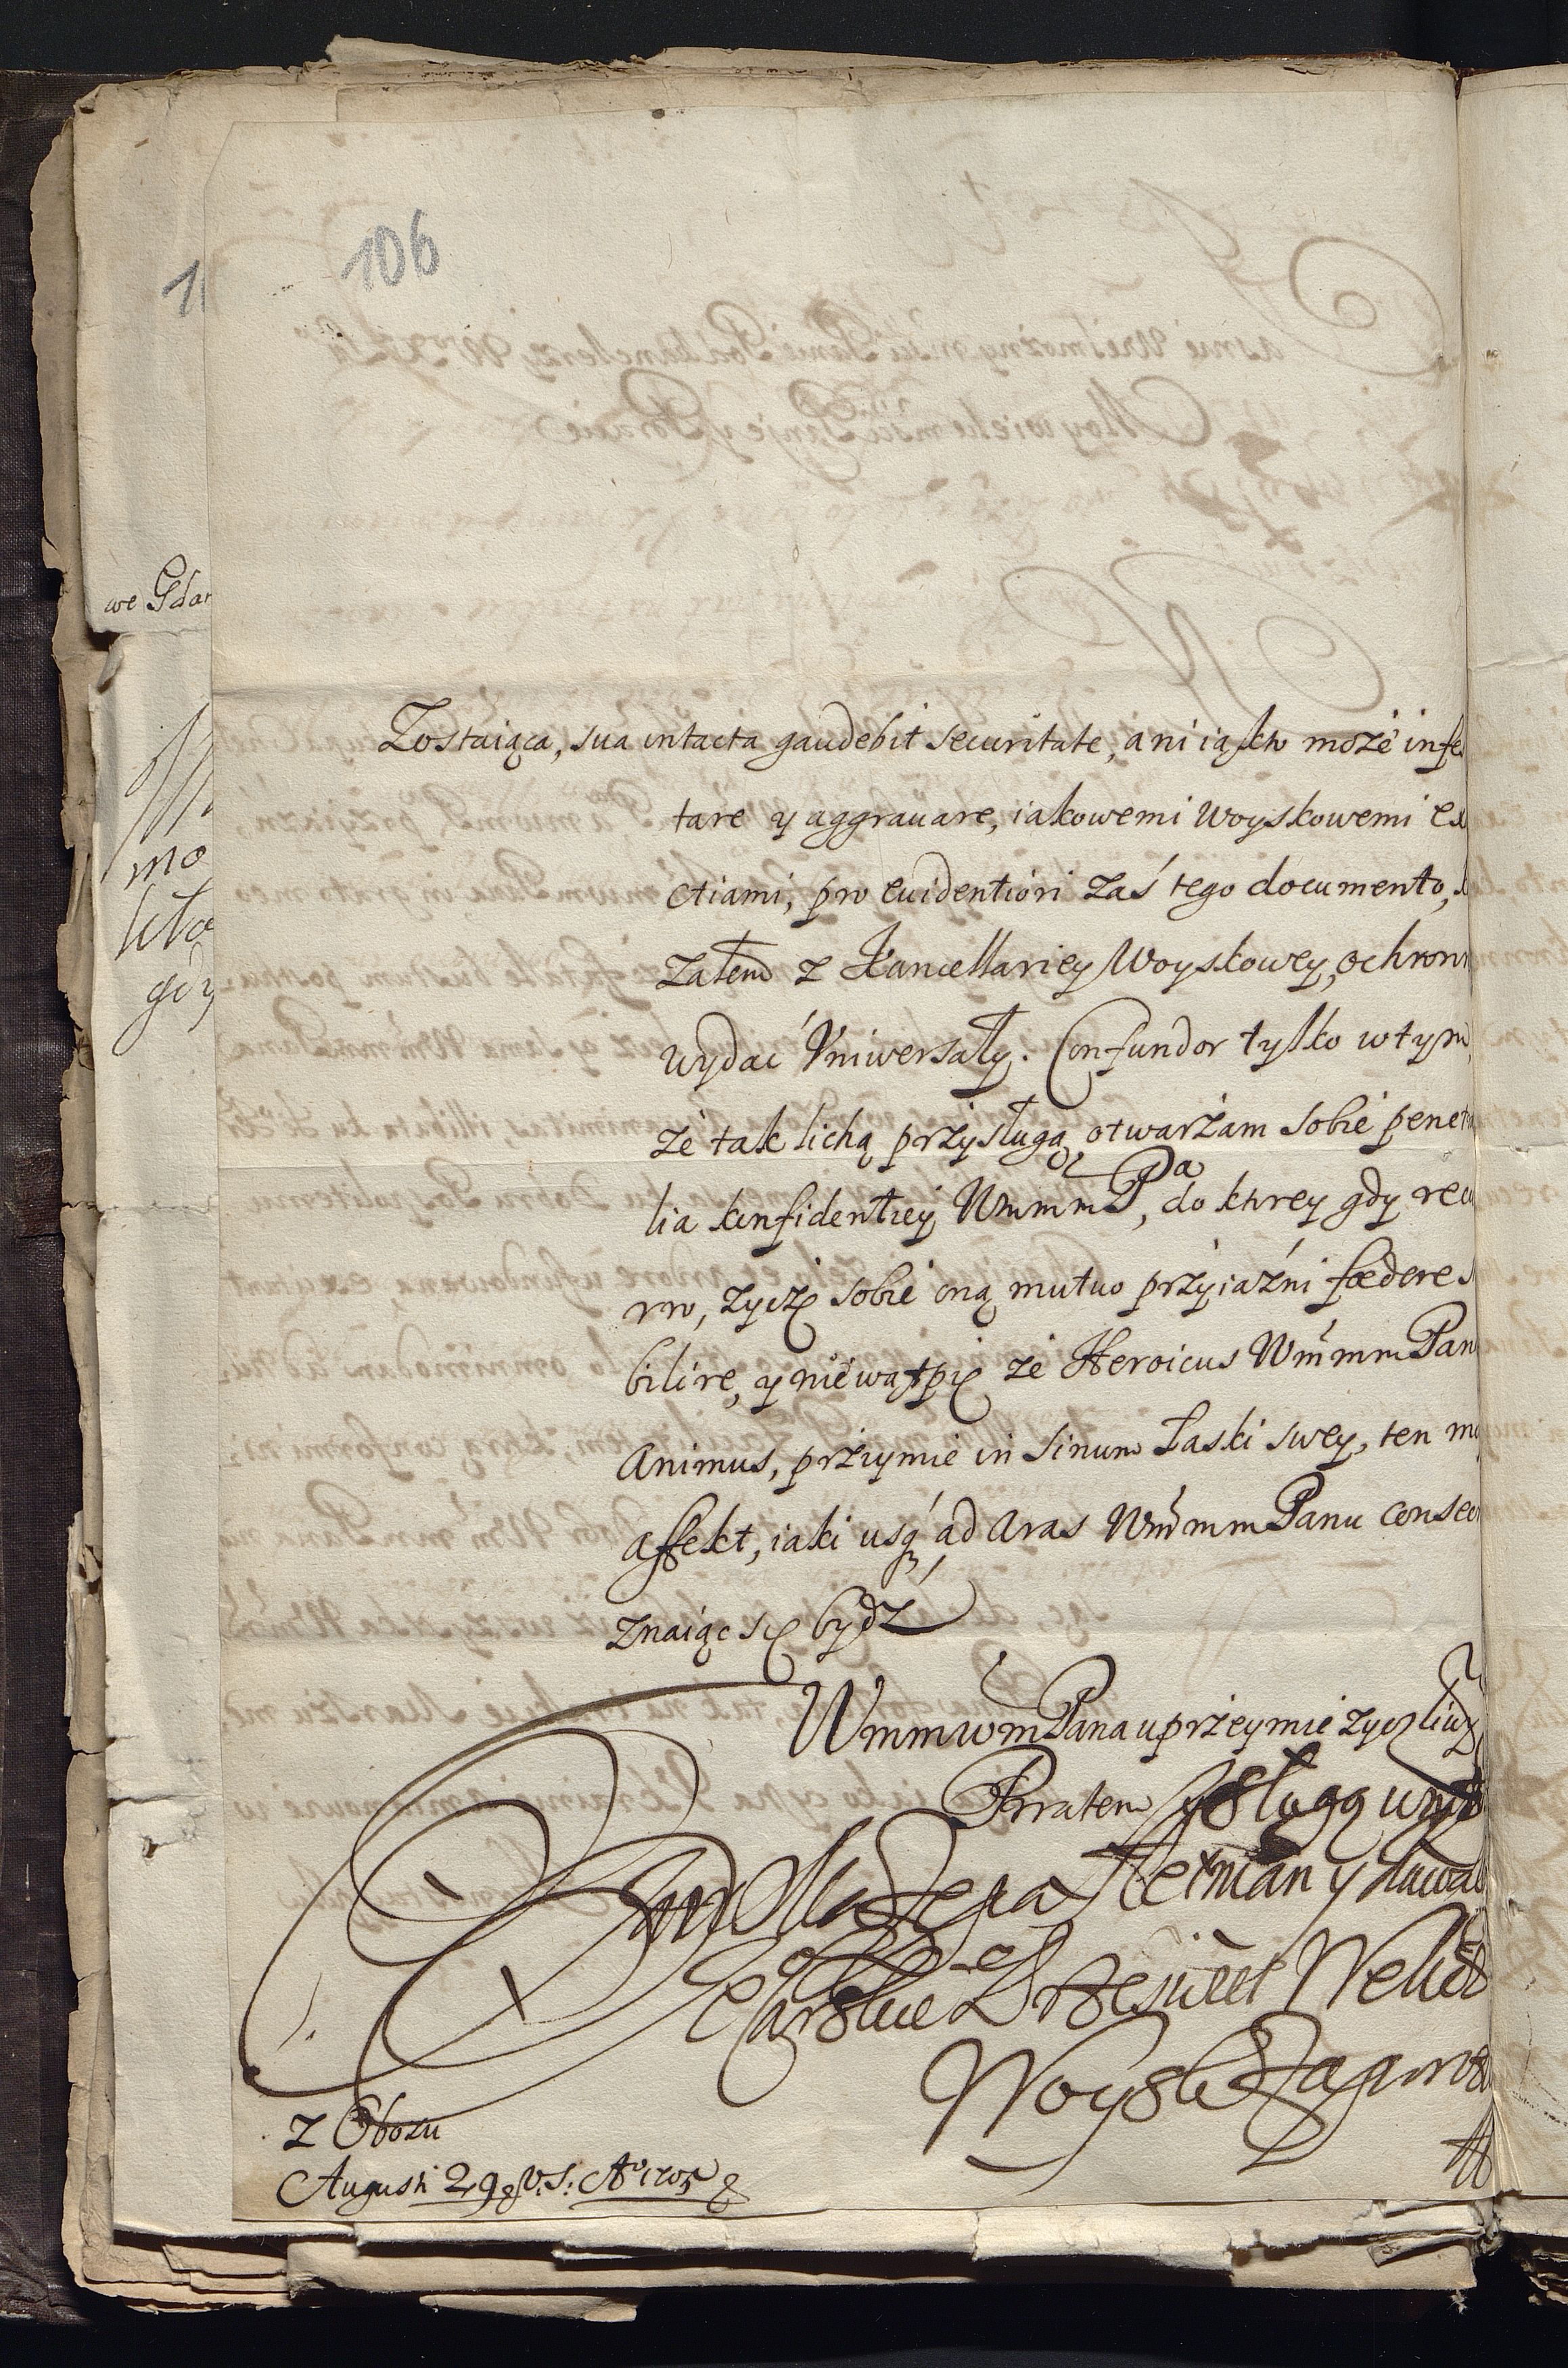 106
1
we Gdar
Zostaiąca, sua intacta gaudebit securitate, ani ią kto może infe
tare y aggrauare, iakowemi Woyskowemi ex
ctiami, pro euidentiori zaś tego documento,
załem z Kancellariey Woyskowey, ochron
wydać Uniwersały. Confundor tylko w tym,
że tak lichą przysługą otwarzam sobie penet
lia konfidentiey WmmmPa, do ktrey gdy recu
rro, zyczę sobie oną mutuo przyiaźni fœdere s
bilire, y nie wątpię że Heroicus WmmmPan
Animus, przyimie in sinum Łaski swey, ten mo
affekt, iaki usq; ad Aras WmmmPanu consec
znaiąc się bydź
mo
gdy
WmmwmPana uprzeymie zyczliwy
Bratem y sługą uniż
Jan Mazepa Hetman y kawal
Carskie Przeswiet Welicz
Woysk Zaporos
z Obozu
Augusti 29 v. s: Ao 1705